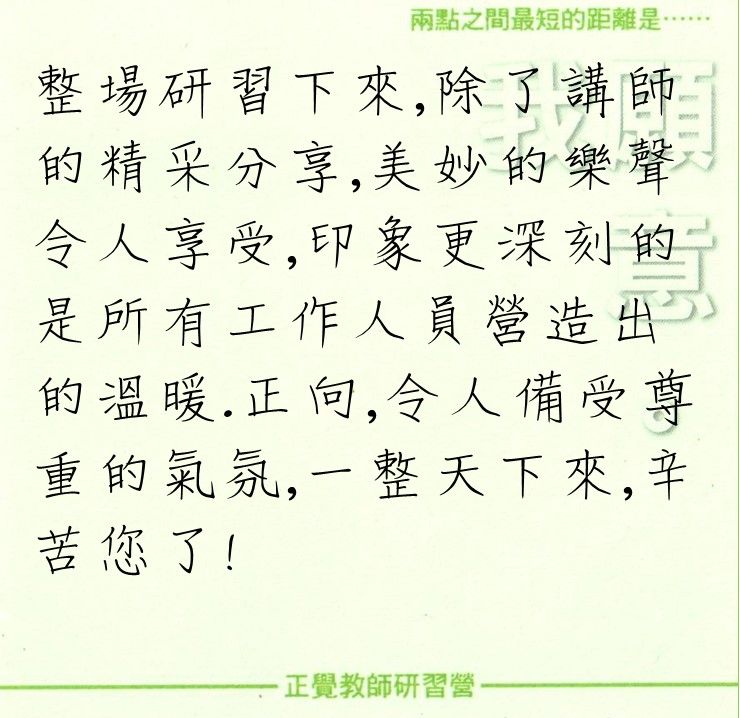 兩點之間最短的距離是……
我願
意
整場研習下來,除了講師
的精采分享,美妙的樂聲
令人享受,印象更深刻的
是所有工作人員營造出
的溫暖.正向,令人備受尊
重的氣氛,一整天下來,辛
苦您了!
正覺教師研習營